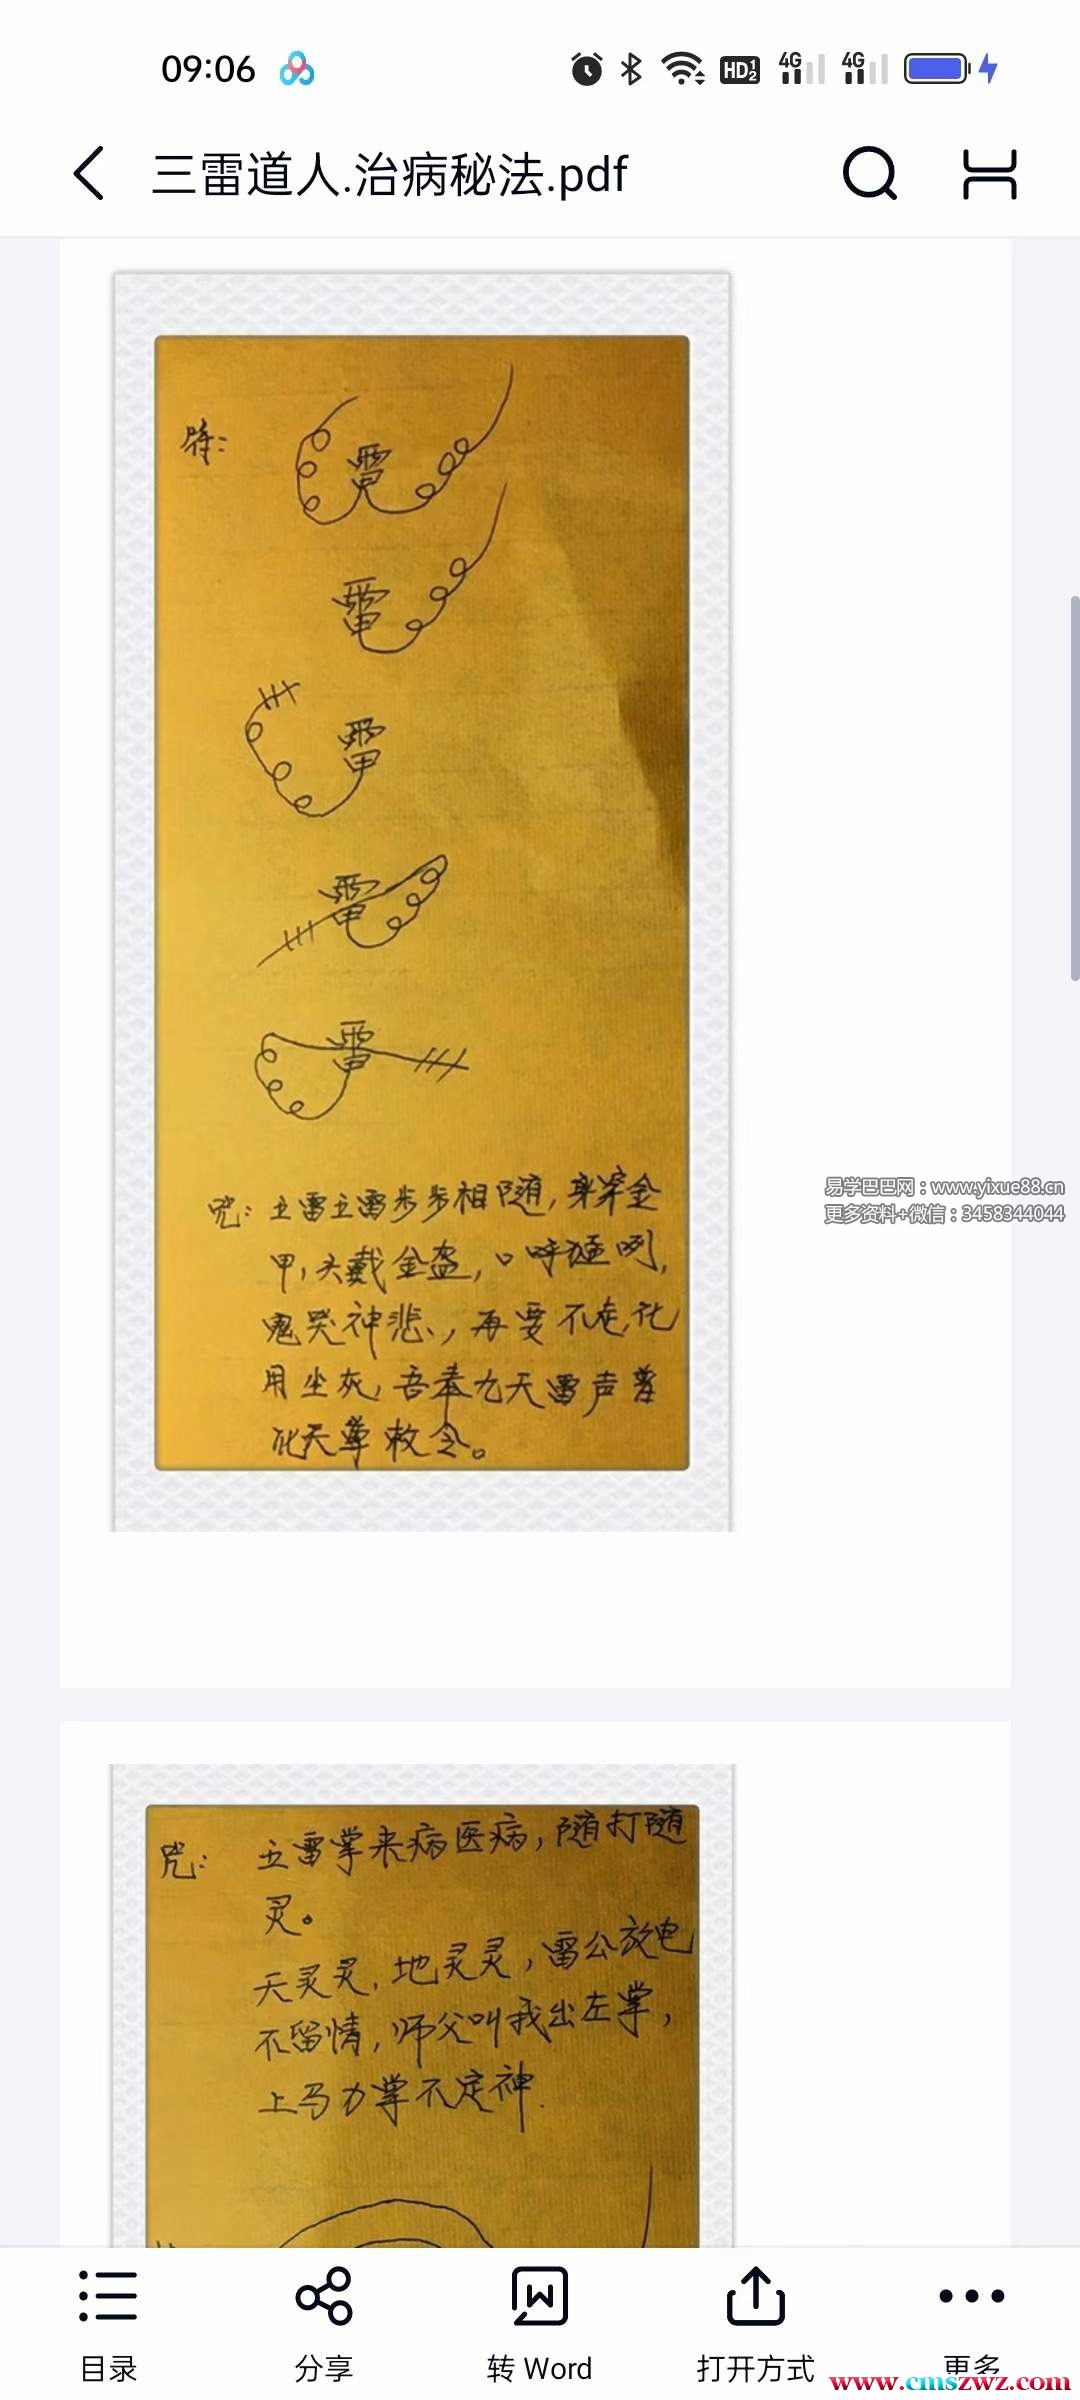 09:06
HD 1 2 4G 4G
三雷道人.治病秘法.pdf
雷
雷
雷
雷
雷
咒: 五雷五雷步步相随,身穿金
甲,头戴金盔,口呼猛咧,
鬼哭神悲,再要不走,化
用坐灰,吾奉九天雷声普
化天尊敕令。
易学巴巴网:www.yixue88.cn
更多资料+微信:3458344044
咒: 五雷掌来病医病,随打随
灵。
天灵灵,地灵灵,雷公放电
不留情,师父叫我出左掌,
上马力掌不定神.
目录
分享
转 Word
打开方式
更多
www.cmszwz.com